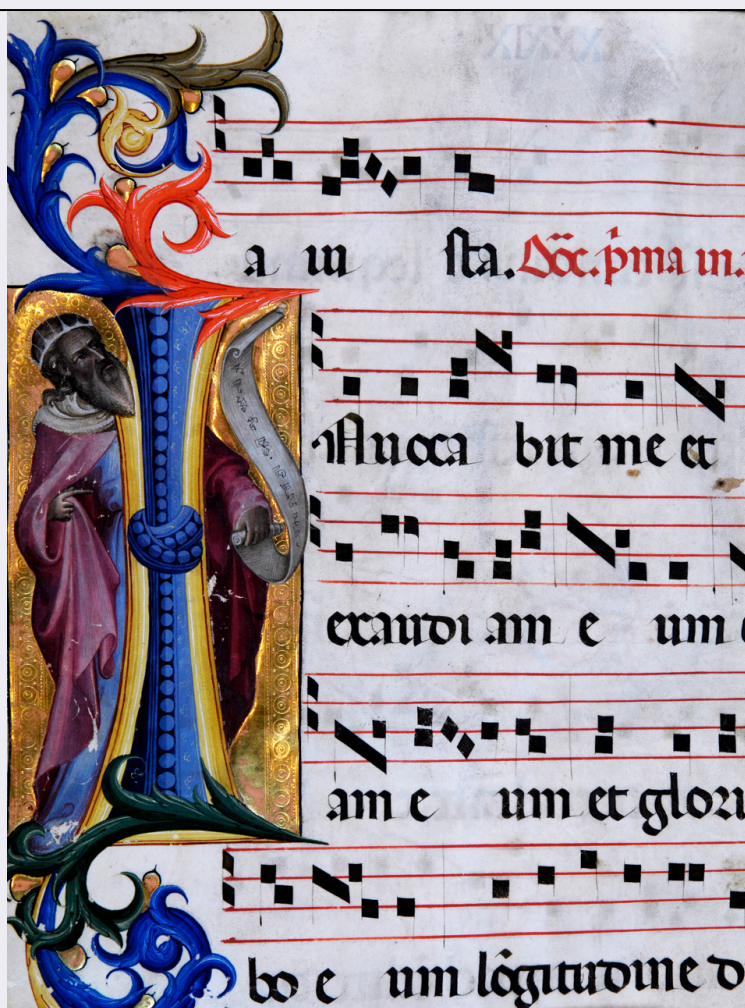 a in sta. Dñc. p̄ma in.
Nuoca bit me et
exaudi am e um
am e um et glori
bo e um lõgitudine d